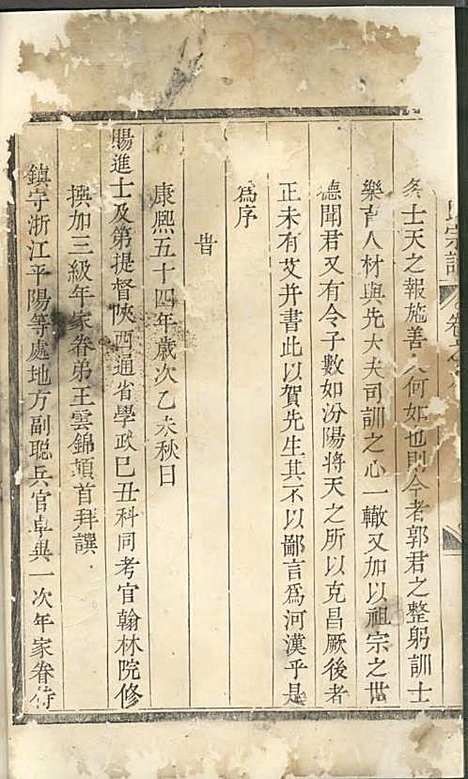 氏宗譜 卷之
名士天之報施善人何如也則今者郭君之整躬訓士
樂育人材與先大夫司訓之心一轍又加以祖宗之世
德聞君又有令子數如汾陽將天之所以克昌厥後者
正未有艾并書此以賀先生其不以鄙言為河漢乎是
為序
旹
康熙五十四年歲次乙未秋日
賜進士及第提督陝西通省學政己丑科同考官翰林院修
撰加三級年家眷弟王雲錦頓首拜譔
鎮守浙江平陽等處地方副聰兵官卓異一次年家眷侍